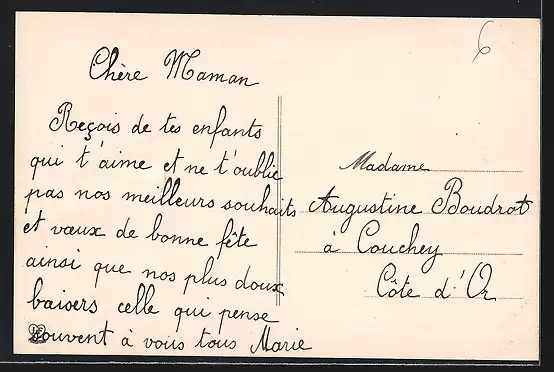 6
Chère Maman
Reçois de tes enfants
qui t'aime et ne t'oublie
pas nos meilleurs souhaits
et vœux de bonne fête
ainsi que nos plus doux
baisers celle qui pense
souvent à vous tous Marie
Madame
Augustine Boudrot
à Couchey
Côte d'Or